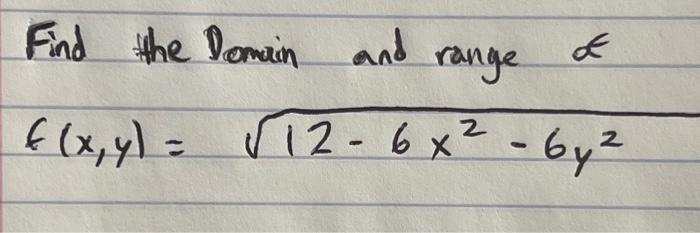 Find the Domain and range of
f(x,y) = √12 - 6x² - 6y²